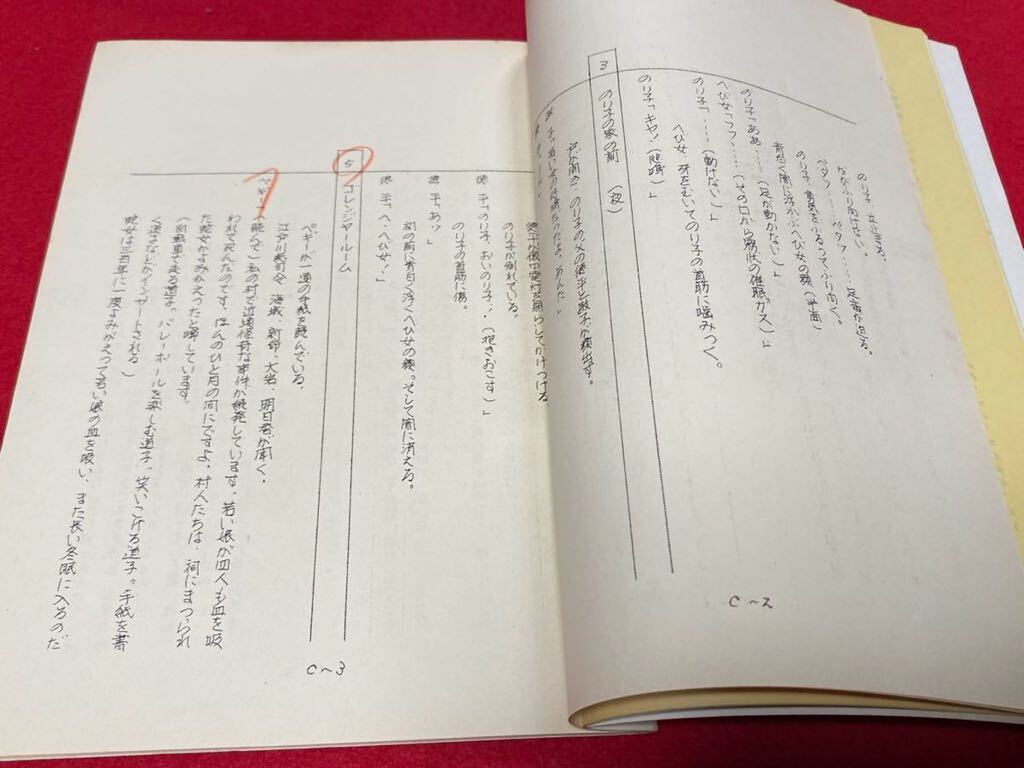 のり子、立ち止る、
なかなかふり向けない。
ペタン……ペタン……足音が迫る。
のり子、勇気をふるってふり向く。
青白く闇に浮かぶへび女の顔（半面）
のり子「ああ……（足が動かない）」
へび女「フフ……（その口から霧状の催眠ガス）
のり子「……（動けない）」
へび女、牙をむいてのり子の首筋に噛みつく。
のり子「キャッ！（悲鳴）」
3
のり子の家の前　（夜）
戸が開き、のり子の父の
が顔出す。
懐中電灯を照らしてかけつける、
のり子が倒れている。
「のり子、おいのり子！（抱きおこす）」
のり子の首筋に傷。
「あッ」
祠の前に青白く浮くへび女の顔。そして闇に消える。
「へ、へび女！」
C～2
5
ゴレンジャールーム
ペギーが一通の手紙を読んでいる、
江戸川総司令、海城、新命、大岩、明日香が聞く・
（読んで）私の村で近頃怪奇な事件が続発しています。若い娘が四人も血を吸
われて死んだのです。ほんのひと月の間にですよ、村人たちは、祠にまつられ
た蛇女がよみがえったと噂しています。
（自転車で走る道子。バレーボールを楽しむ道子。笑いこける道子。手紙を書
く道子などがインサートされる）
蛇女は百年に一度よみがえって若い娘の血を吸い、また長い冬眠に入るのだ
C～3